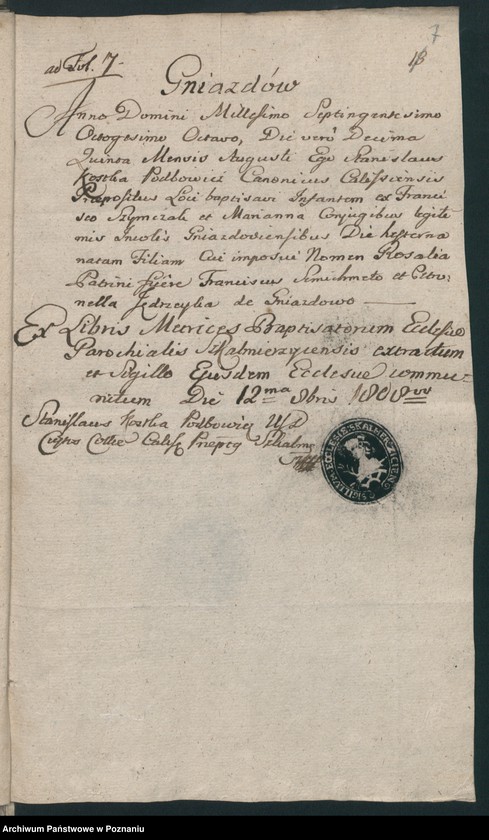 7
ad Fol. 7.
Gniazdów
Anno Domini Millesimo Septingentesimo
Octogesimo Octavo, Die verò Decima
Quinta Mensis Augusti Ego Stanislaus
Kostka Podbowicz Canonicus Calissiensis
Præpositus Loci baptisavi Infantem ex Franci
sco Szymczak et Marianna Conjugibus legiti
mis Incolis Gniazdoviensibus Die hesterna
natam Filiam Cui imposui Nomen Rosalia
Patrini fuere Franciscus et Petro-
nella de Gniazdowo
Ex Libris Metrices Baptisatorum Ecclesiæ
Parochialis Skalmierzycensis extractum
et Sigillo Ejusdem Ecclesiæ commu-
nitum Die 12ma 8bris 1808vo
Stanislaus Kostka Podbowicz
Calis Skalmę
SIGILLUM ECCLESIÆ SKALMERZICIEN
Archiwum Państwowe w Poznaniu